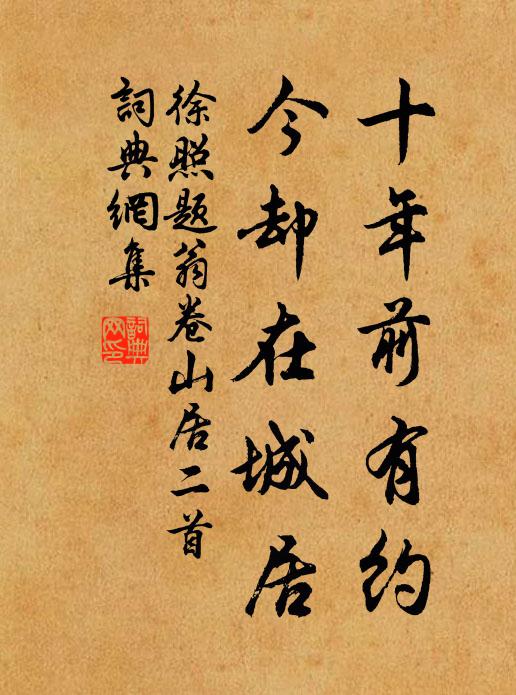 十年前有约
今却在城居
徐照题翁卷山居二首
詞典網集
詞典网印